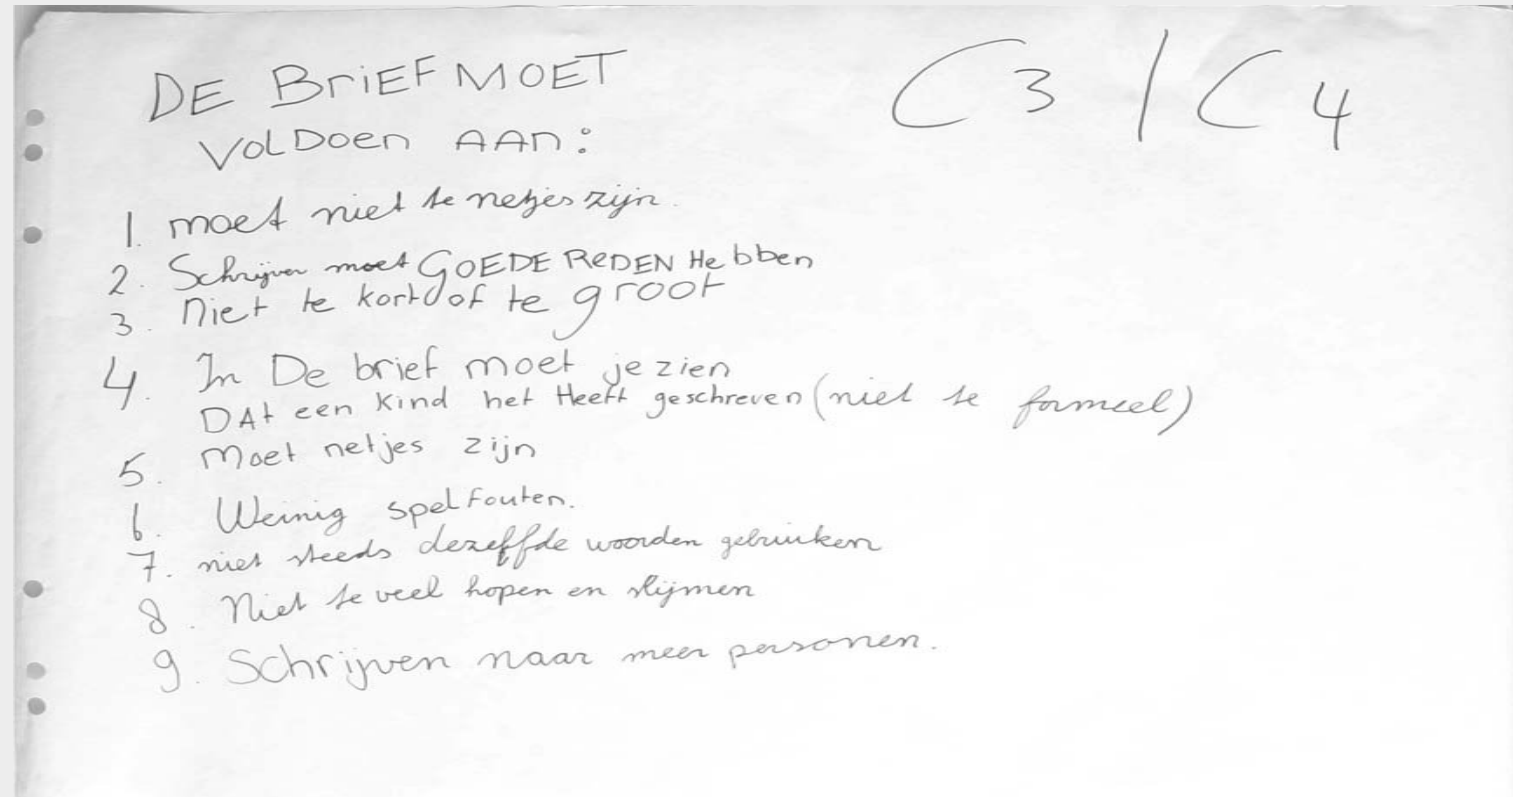 DE BriEF MOET
C3 / C4
VOLDoen AAn:
1. moet niet te netjes zijn.
2. Schrijver moet GOEDE REDEN Hebben
3. niet te kort of te groot
4. In De brief moet je zien
DAt een kind het Heeft geschreven (niet te formeel)
5. Moet netjes zijn
6. Weinig spelfouten.
7. niet steeds dezelfde woorden gebruiken
8. Niet te veel hopen en slijmen
9. Schrijven naar meer personen.